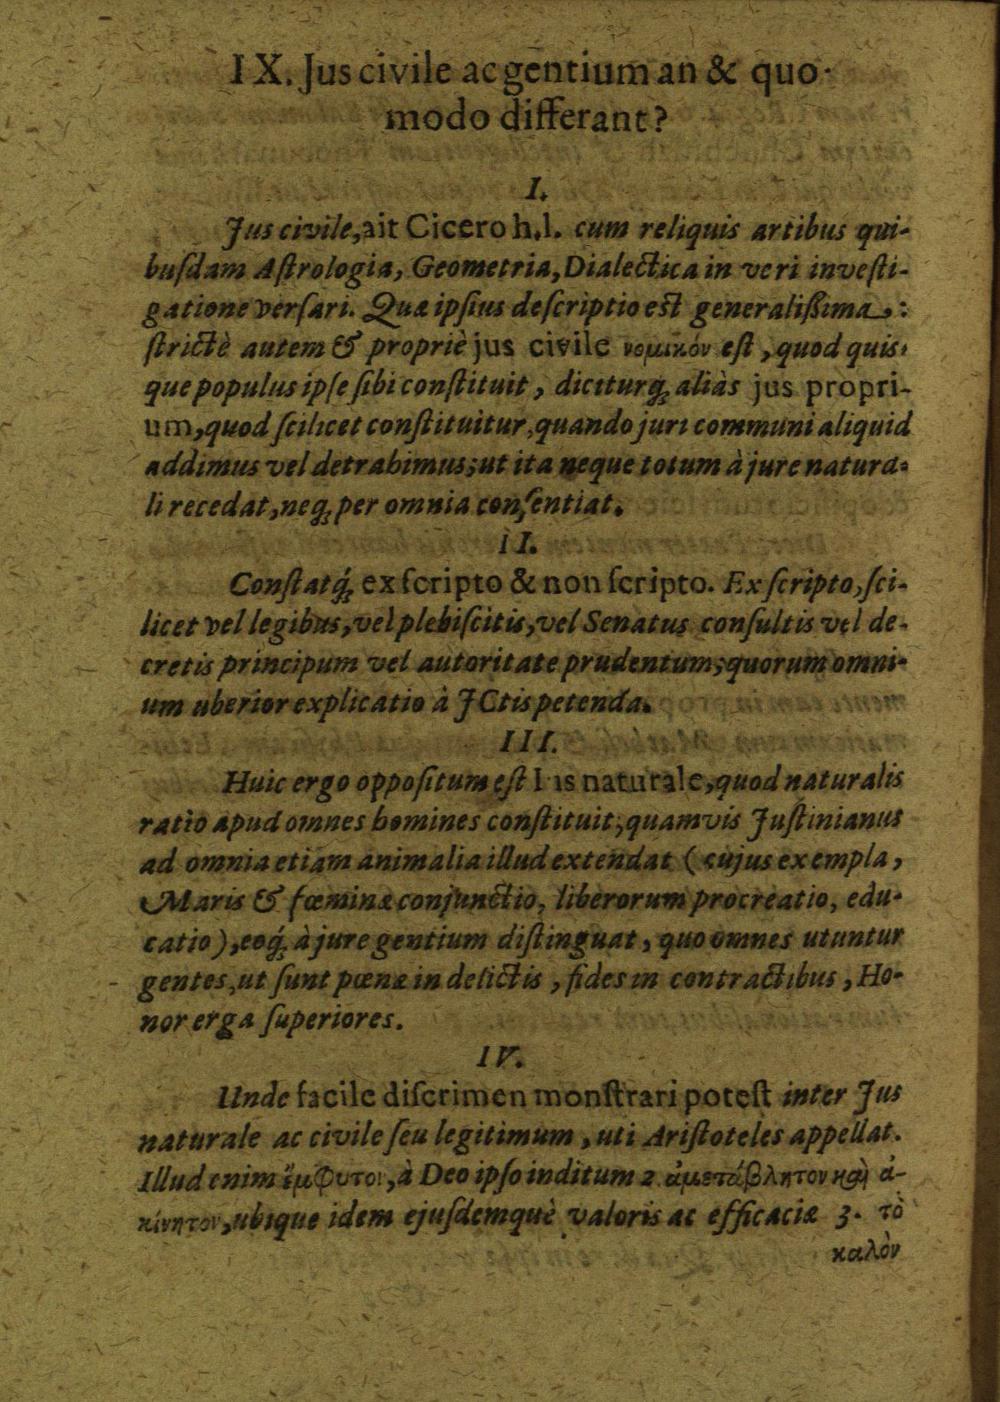 IX. Jus civile ac gentium an & quo-
modo differant?
I.
Jus civile, ait Cicero h.l. cum reliquis artibus qui-
buſdam Aſtrologia, Geometria, Dialectica in veri inveſti-
gatione verſari. Quæ ipſius deſcriptio est generaliſſima,:
ſtrictè autem & propriè jus civile νομικόν eſt, quod quis-
que populus ipſe ſibi conſtituit, diciturq́ aliàs jus propri-
um, quod ſcilicet conſtituitur, quando juri communi aliquid
addimus vel detrahimus; ut ita neque totum à jure natura-
li recedat, neq́ per omnia conſentiat.
II.
Conſtatq́ ex ſcripto & non ſcripto. Ex ſcripto, ſci-
licet vel legibus, vel plebiſcitis, vel Senatus conſultis vel de-
cretis principum vel autoritate prudentum; quorum omni-
um uberior explicatio à JCtis petenda.
III.
Huic ergo oppoſitum eſt Ius naturale, quod naturalis
ratio apud omnes homines conſtituit, quamvis Juſtinianus
ad omnia etiam animalia illud extendat (cujus exempla,
Maris & fœminæ conjunctio, liberorum procreatio, edu-
catio), eoq́ à jure gentium diſtinguat, quo omnes utuntur
gentes, ut ſunt pœnæ in delictis, fides in contractibus, Ho-
nor erga ſuperiores.
IV.
Unde facile diſcrimen monſtrari poteſt inter Jus
naturale ac civile ſeu legitimum, uti Ariſtoteles appellat.
Illud enim ἔμφυτον, à Deo ipſo inditum 2. ἀμετάβλητον καὶ ἀ-
κίνητον, ubique idem ejuſdemquè valoris ac efficaciæ 3. τὸ
καλὸν